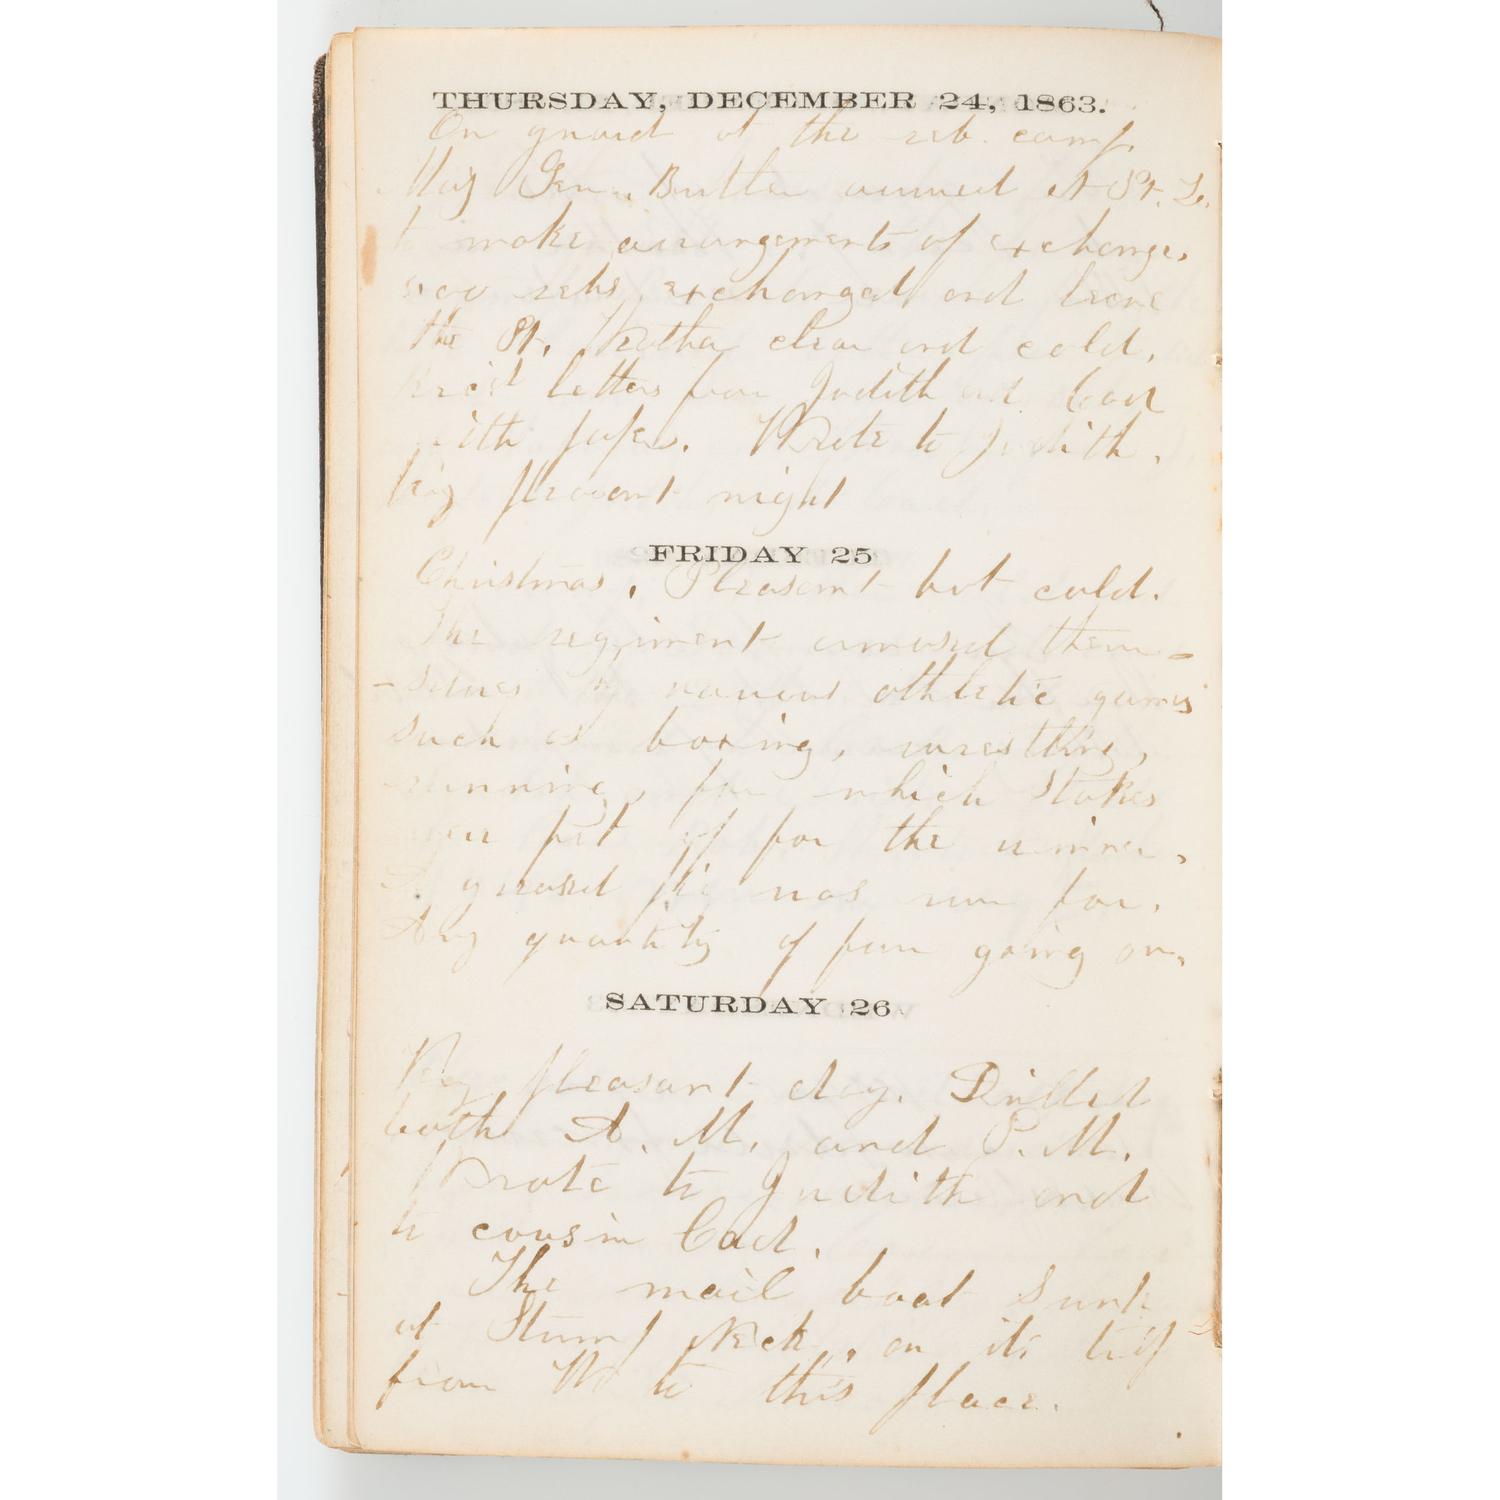 THURSDAY, DECEMBER 24, 1863.
On guard at the reb. camp.
Maj Gen. Butler arrived at Pt. Lo.
to make arrangements of exchange.
500 rebs. exchanged and leave
the Pt. Weather clear and cold.
Rec'd letters from Judith and Cad
with papers. Wrote to Judith.
Very pleasant night
FRIDAY 25
Christmas. Pleasant but cold.
The regiment amused them-
-selves by various athletic games
such as boxing, wrestling,
running, for which stakes
were put up for the winner.
A greased pig was run for.
Any quantity of fun going on.
SATURDAY 26
Very pleasant day. Drilled
both A. M. and P. M.
Wrote to Judith and
to cousin Cad.
The mail boat sunk
at Stump Neck, on its trip
from W to this place.